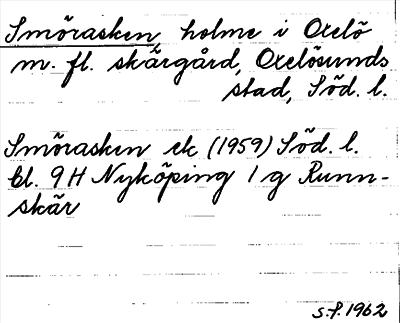 Smörasken holme i Oxelö
m. fl. skärgård, Oxelösunds
stad, Söd. l.
Smörasken ek (1959) Söd. l.
bl. 9 H Nyköping 1 g Runn-
skär
s.f. 1962